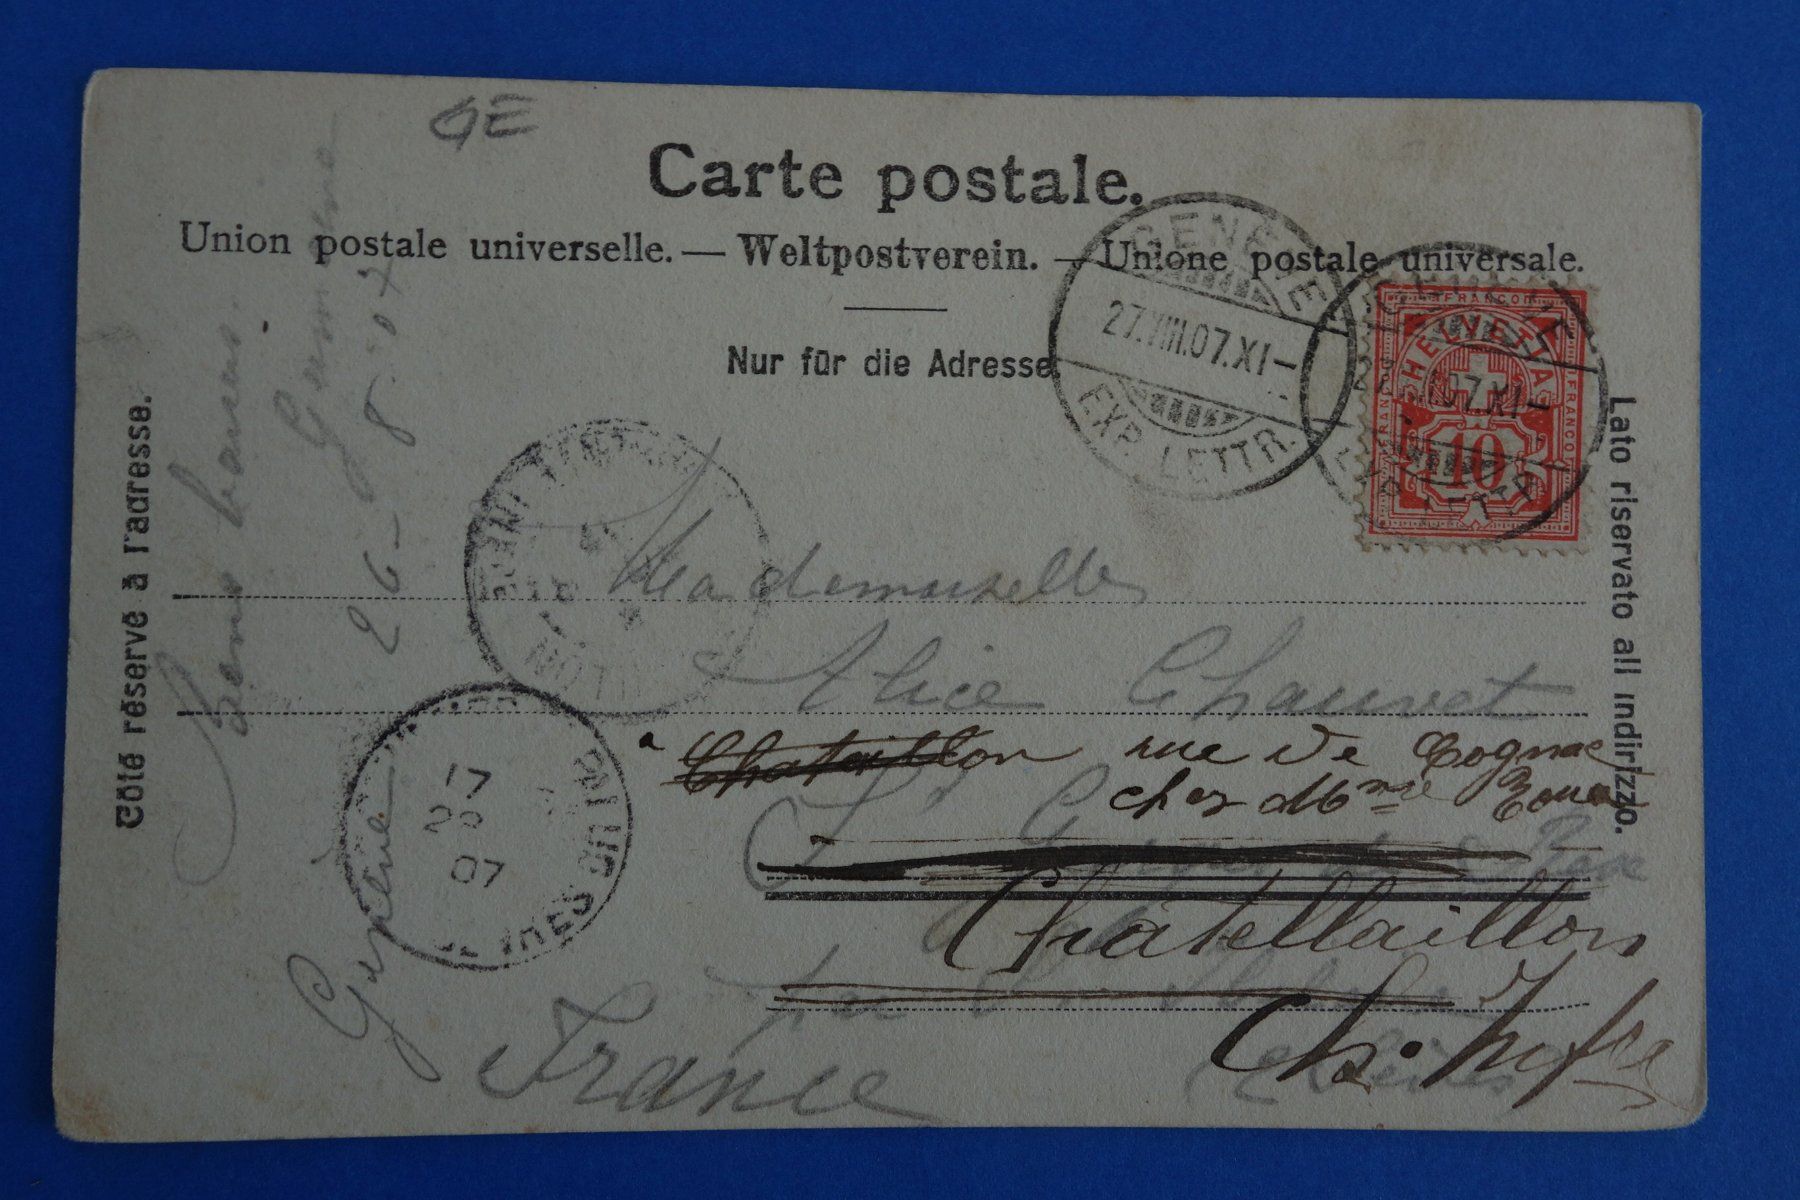 GE
Carte postale.
Union postale universelle. — Weltpostverein. — Unione postale universale.
Nur für die Adresse.
Côté réservé à l'adresse.
Lato riservato all indirizzo.
GENÈVE
27.VIII.07.XI—
EXP. LETTR.
GENÈVE
07.XI—
EXP. LETTR.
FRANCO
HELVETIA
FRANCO
FRANCO
10
Bons baisers.
Germaine
26-8-07
Genève
17
07
Mademoiselle
Alice Chauvet
a Chataillon rue de Cognac
chez Mme
Châtellaillon
Ch. Infre
France